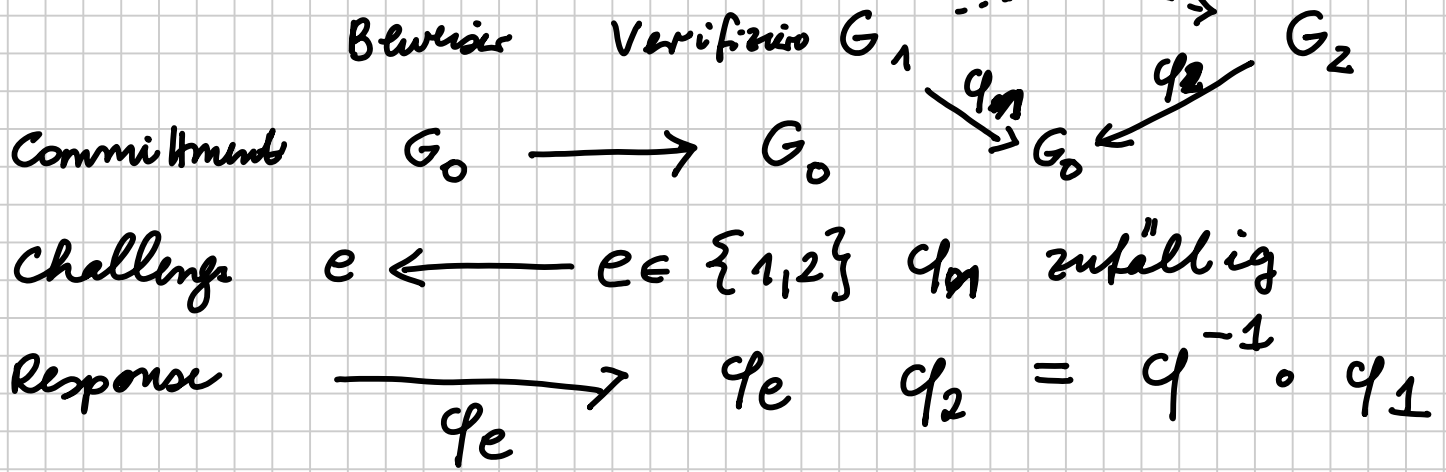 Beweiser Verifizierer G₁ G₂
φ₁ φ₂
Commitment G₀ → G₀ G₀
Challenge e ← e ∈ {1,2} φ₁ zufällig
Response → φe φ₂ = φ⁻¹ ∘ φ₁
φe